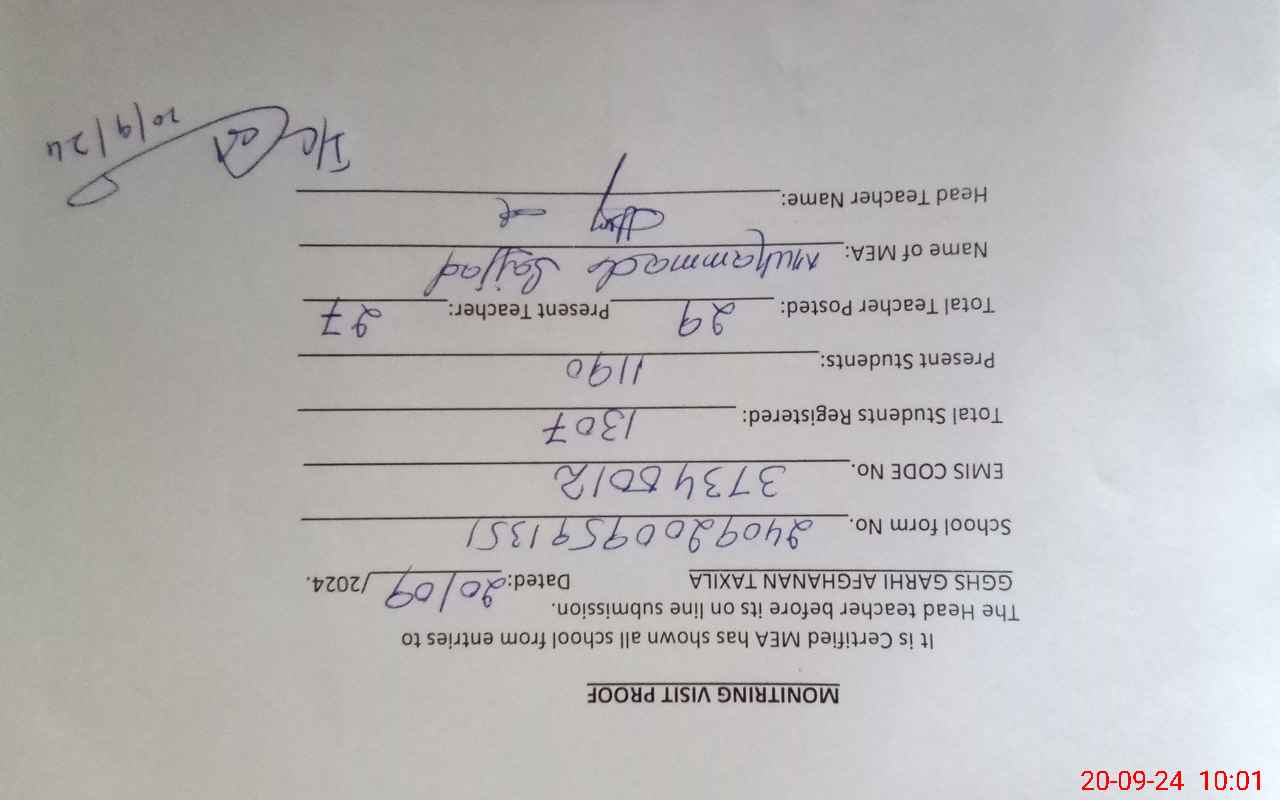 MONITRING VISIT PROOF
It is Certified MEA has shown all school from entries to
The Head teacher before its on line submission.
GGHS GARHI AFGHANAN TAXILA Dated: 20/09/2024.
School form No. 24092009591351
EMIS CODE No.
Total Students Registered: 1307
Present Students: 1190
Total Teacher Posted: 29 Present Teacher: 27
Name of MEA: Muhammad Sajjad
Head Teacher Name:
20/9/24
20-09-24 10:01